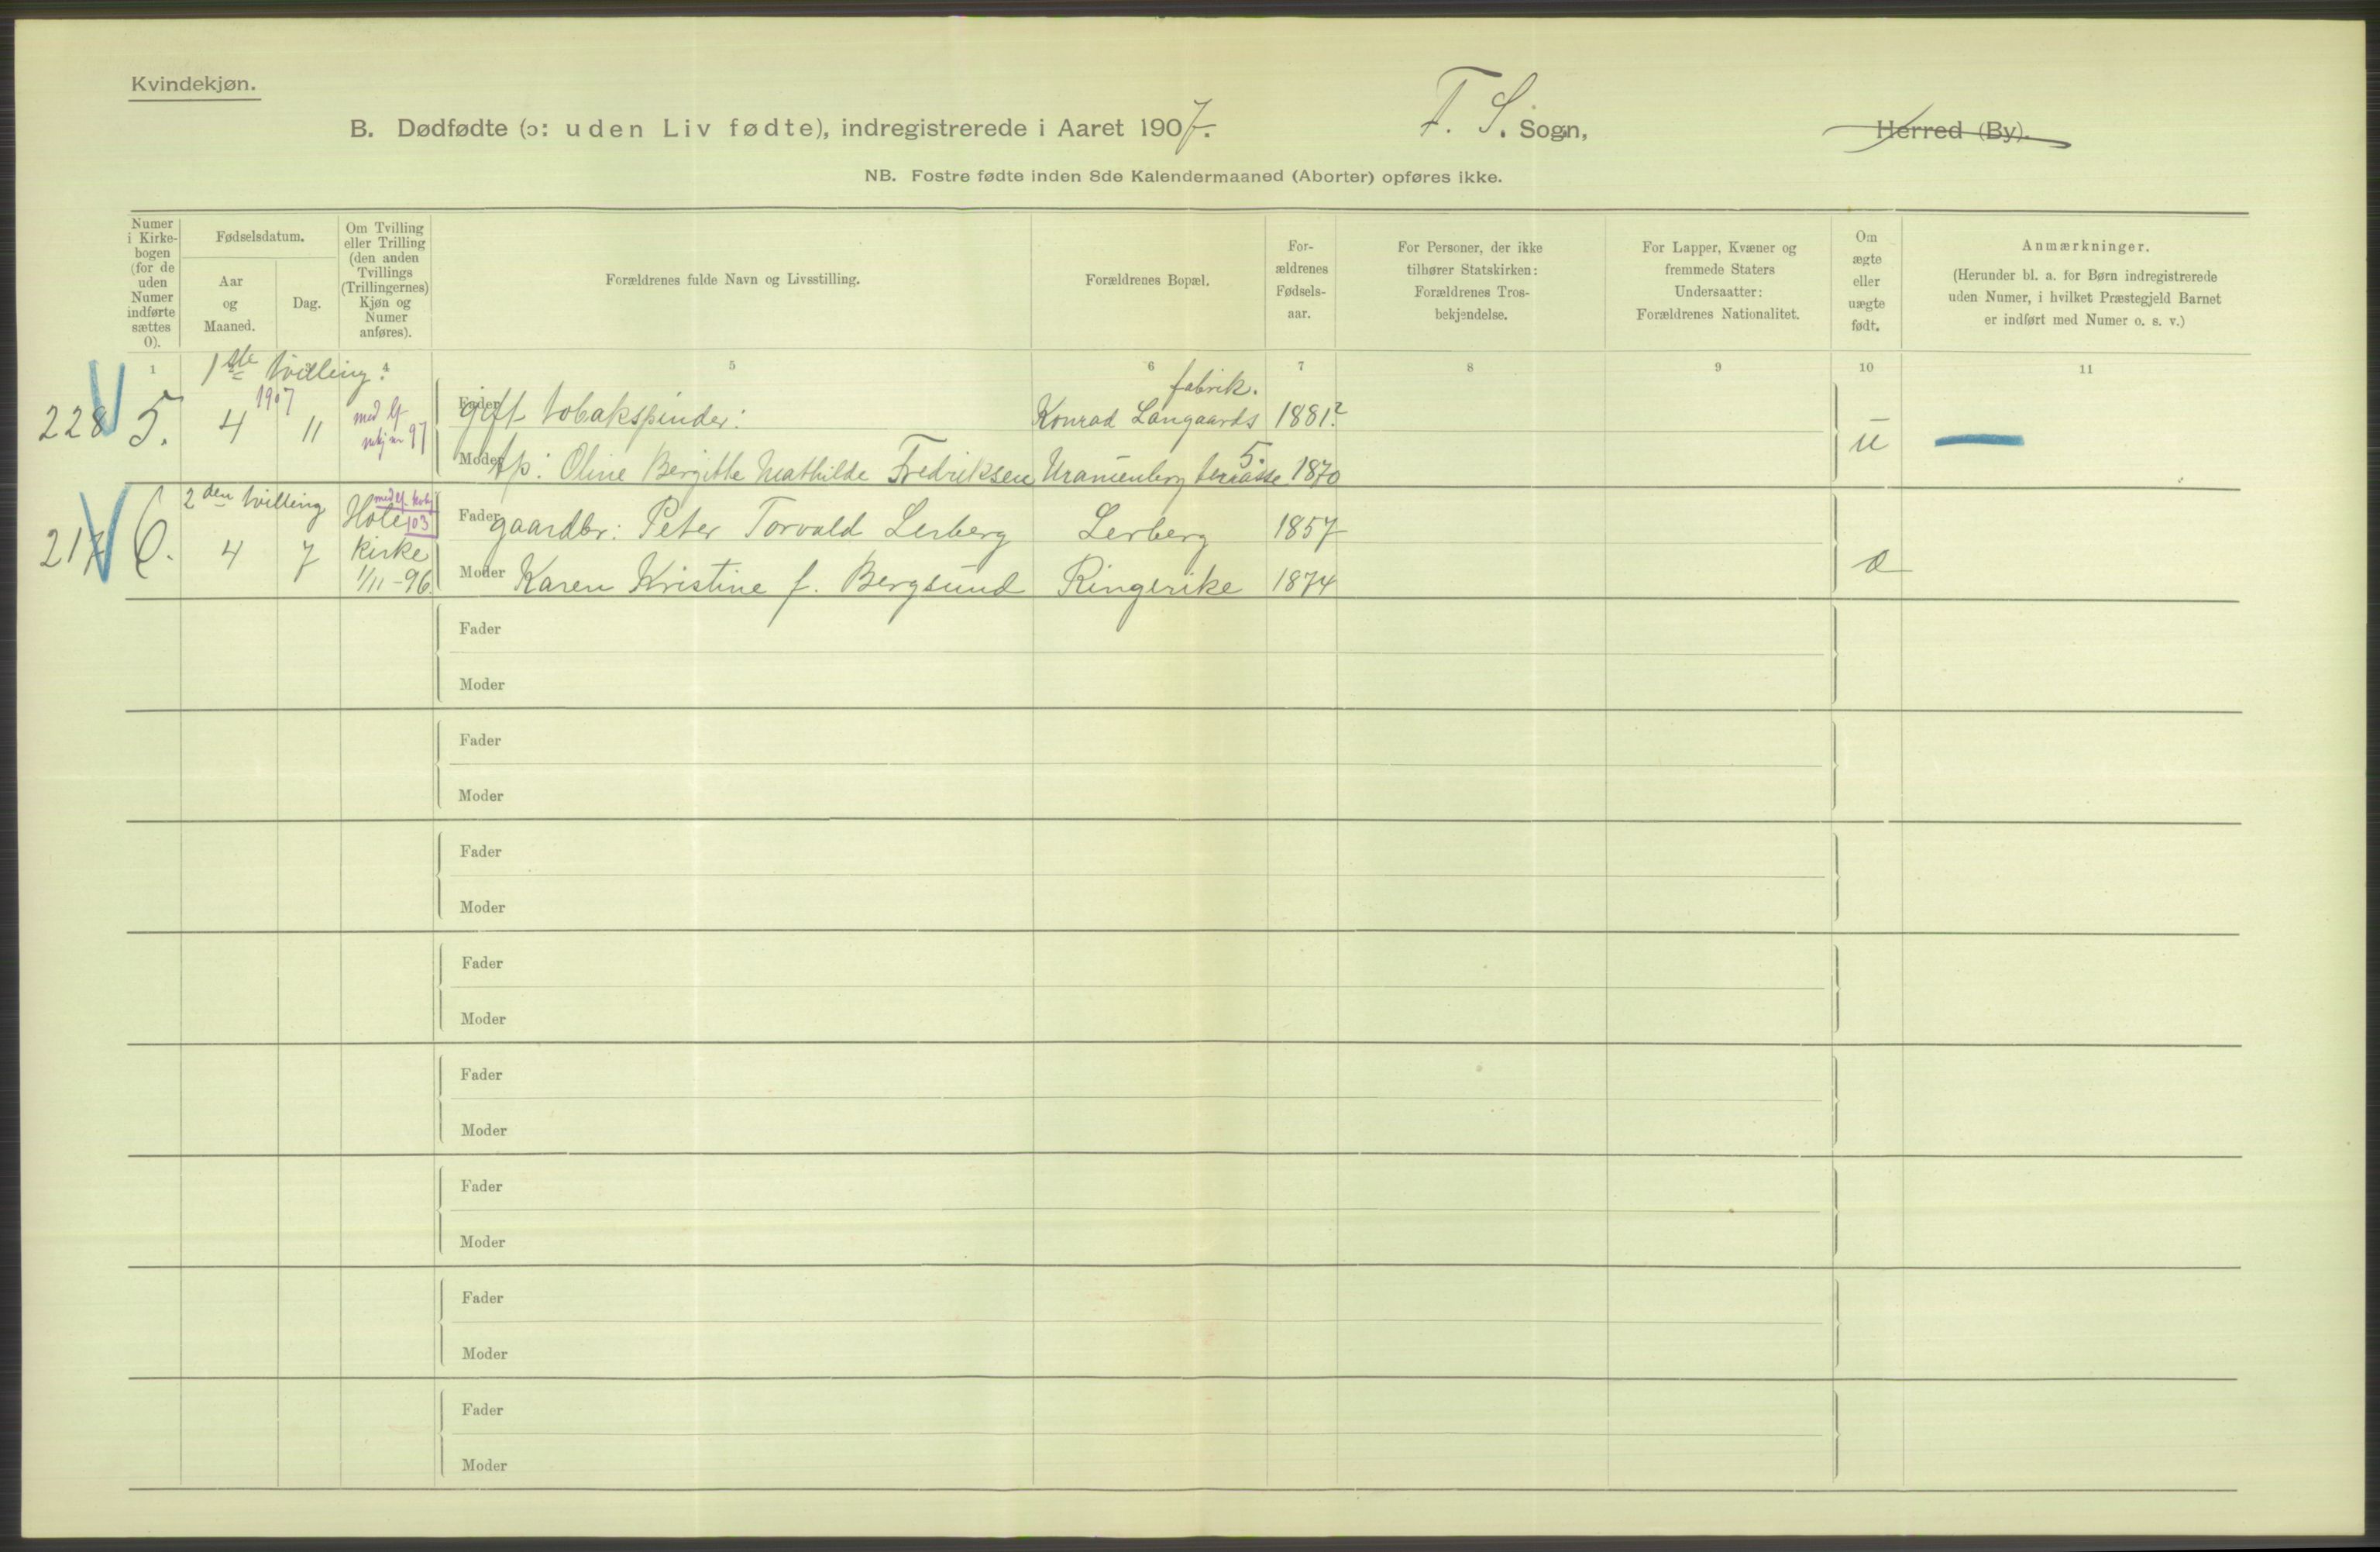 Kvindekjøn.
B. Dødfødte (ɔ: uden Liv fødte), indregistrerede i Aaret 1907.
F. S. Sogn,
Herred (By).
NB. Fostre fødte inden 8de Kalendermaaned (Aborter) opføres ikke.
Numer
i Kirke-
bogen
(for de
uden
Numer
indførte
sættes
0).
Fødselsdatum.
Aar
og
Maaned.
Dag.
Om Tvilling
eller Trilling
(den anden
Tvillings
(Trillingernes)
Kjøn og
Numer
anføres).
Forældrenes fulde Navn og Livsstilling.
Forældrenes Bopæl.
For-
ældrenes
Fødsels-
aar.
For Personer, der ikke
tilhører Statskirken:
Forældrenes Tros-
bekjendelse.
For Lapper, Kvæner og
fremmede Staters
Undersaatter:
Forældrenes Nationalitet.
Om
ægte
eller
uægte
født.
Anmærkninger.
(Herunder bl. a. for Børn indregistrerede
uden Numer, i hvilket Præstegjeld Barnet
er indført med Numer o. s. v.)
1 4 5 6 7 8 9 10 11
1ste tvilling:
1907
228 5. 4 11
med lf
mkj nr 97
Fader gift tobakspinder:
fabrik.
Konrad Langaards 1881?
Moder tp: Oline Bergitte Mathilde Fredriksen
5.
Uranienborg terrasse 1870
u
2den tvilling
217 6. 4 7
med lf.
103
Hole
kirke
1/11-96.
Fader gaardbr: Peter Torvald Lerberg Lerberg 1857
Moder Karen Kristine f. Bergsund Ringerike 1874
Fader
Moder
Fader
Moder
Fader
Moder
Fader
Moder
Fader
Moder
Fader
Moder
Fader
Moder
Fader
Moder